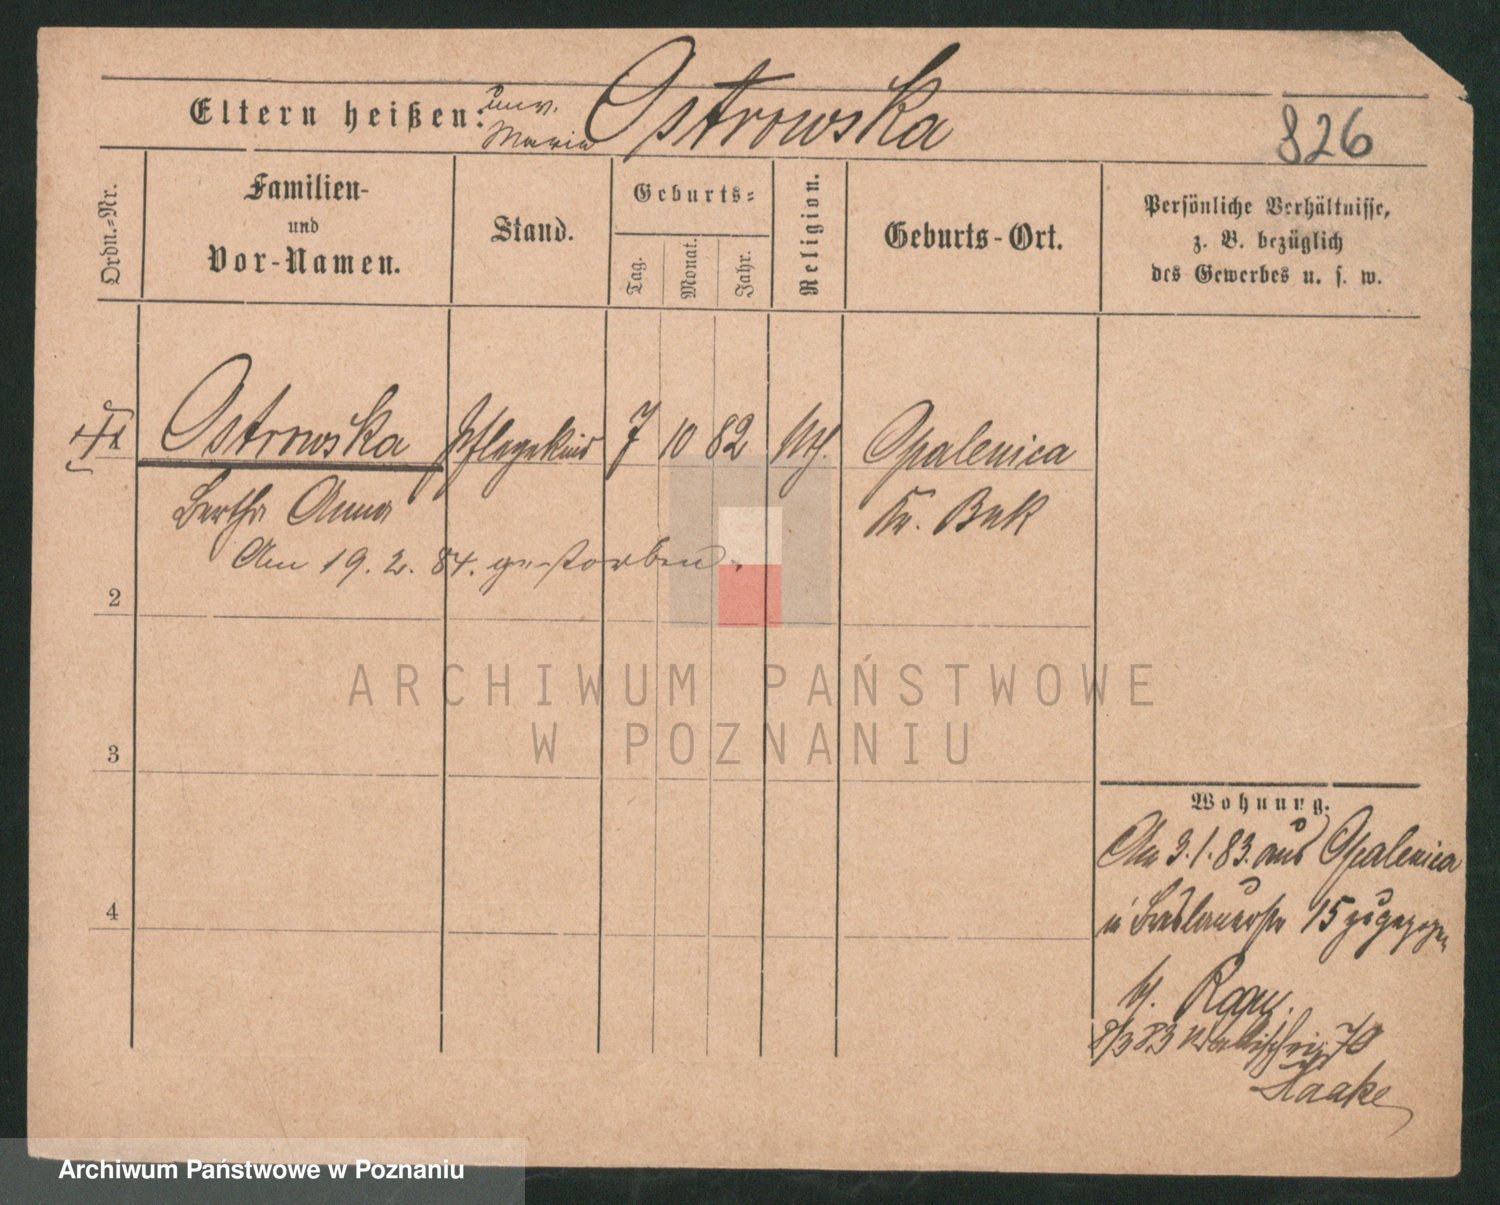 Eltern heißen: unv. Maria Ostrowska
826
Ordn.-Nr.
Familien-
und
Vor-Namen.
Stand.
Geburts-
Tag.
Monat.
Jahr.
Religion.
Geburts-Ort.
Persönliche Verhältnisse,
z. B. bezüglich
des Gewerbes u. s. w.
Ostrowska Pflegekind 7 10 82 Opalenica
Bertha Anna Kr. Buk
Am 19. 2. 84. gestorben.
2
3
4
ARCHIWUM PAŃSTWOWE
W POZNANIU
Wohnung.
Am 3. 1. 83. aus Opalenica
Breslauerstr 15 zugezogen
8/3 83 Wallischei 70
Haake
Archiwum Państwowe w Poznaniu